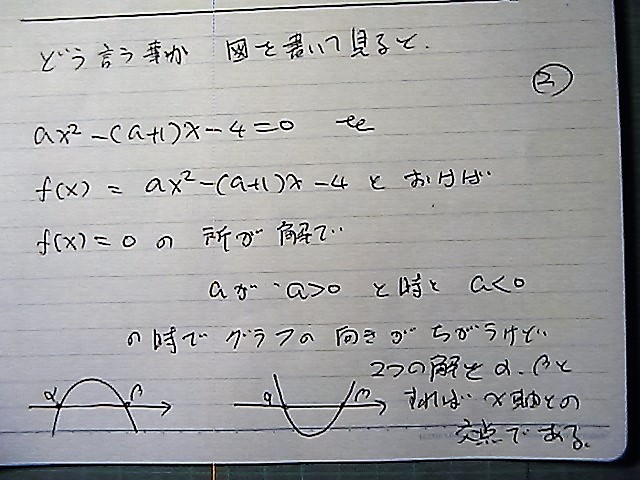 どう言う事か 図を書いて見ると、
②
ax²-(a+1)x-4=0 を
f(x) = ax²-(a+1)x-4 と おけば
f(x)=0 の 所が 解で
aが a>0 と時と a<0
の時で グラフの 向きが ちがうけど
2つの解を α、βと
すれば x軸との
交点である。
α β
α β